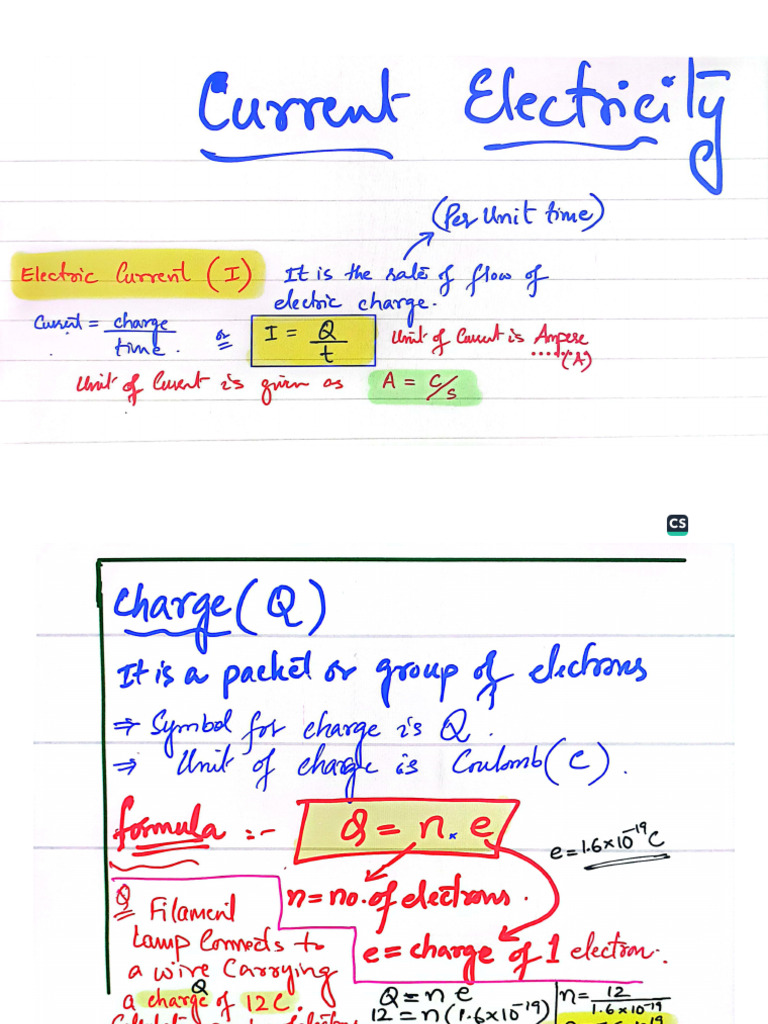 Current Electricity
(Per Unit time)
Electric Current (I) It is the rate of flow of
electric charge.
Current = charge/time. or I = Q/t Unit of Current is Ampere
(A)
Unit of Current is given as A = C/s
CS
Charge (Q)
It is a packet or group of electrons
⇒ Symbol for charge is Q.
⇒ Unit of charge is Coulomb (C).
formula :- Q = n × e
e = 1.6×10⁻¹⁹ C
n = no. of electrons.
e = charge of 1 electron.
Q Filament
Lamp Connects to
a wire Carrying
a charge of 12 C.
Q
Q = n e
12 = n (1.6×10⁻¹⁹)
n = 12/1.6×10⁻¹⁹